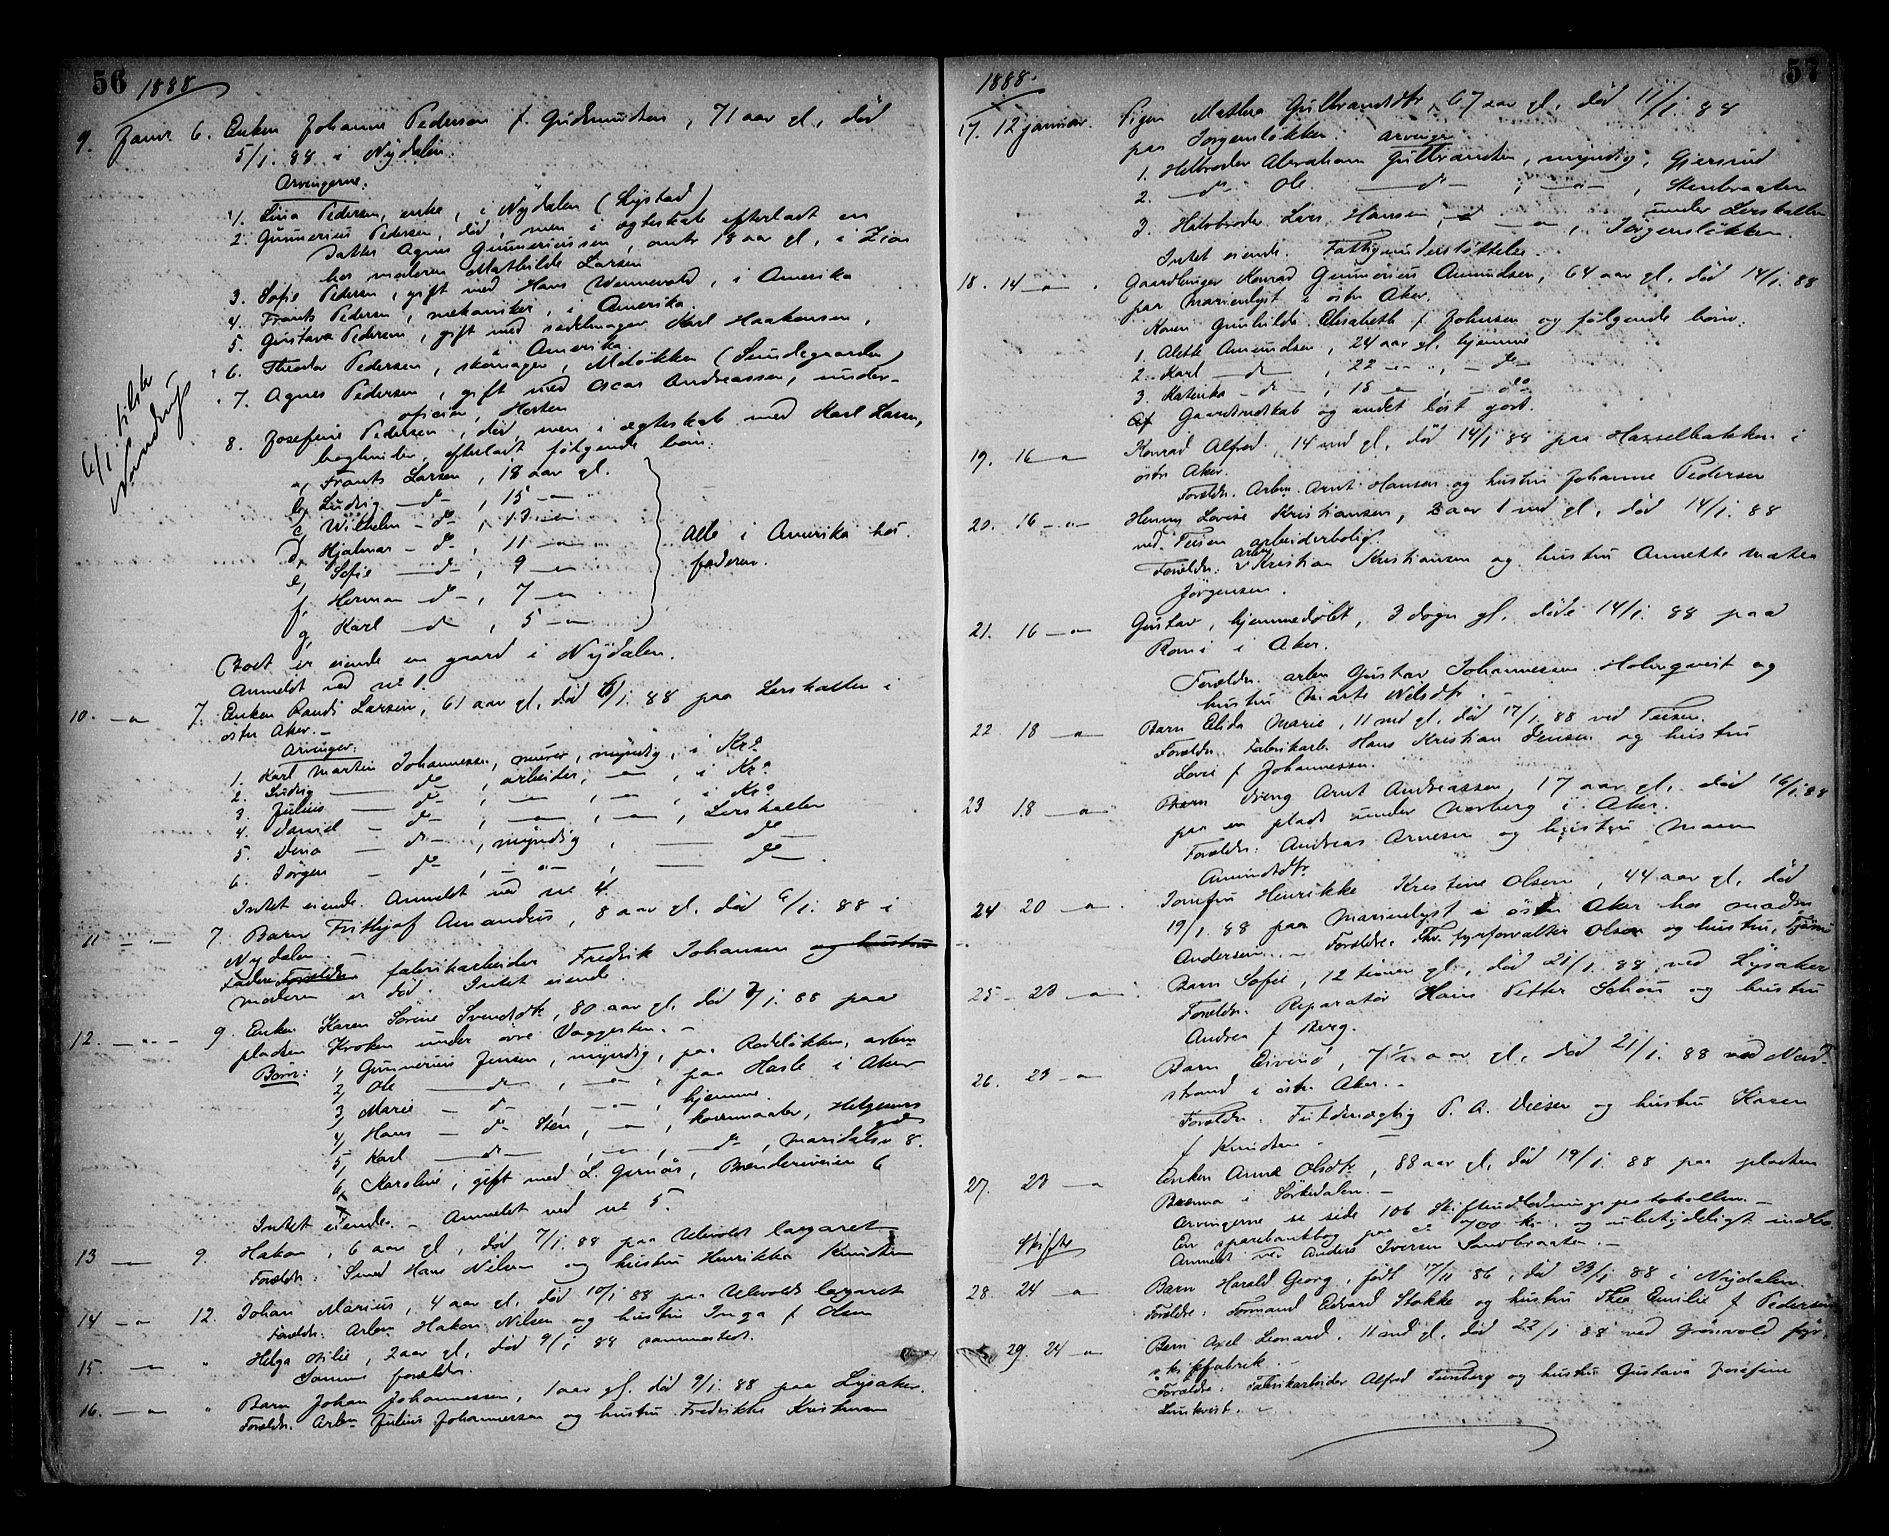 56 1888
9. Januar 6. Enken Johanne Pedersen f. Gudmundsen, 71 aar gl., død
5/1. 88 i Nydalen.
Arvingerne:
1. Lina Pedersen, enke, i Nydalen (Lystad)
2. Gunnerius Pedersen, død, men i ægteskab efterladt en
datter Agnes Gunneriussen, omtr. 18 aar gl., i Zion
hos moderen Mathilde Larsen
3. Sofie Pedersen, gift med Hans Wennevold, i Amerika
4. Frants Pedersen, mekaniker, i Amerika.
5. Gustava Pedersen, gift med sadelmager Karl Haakensen,
Amerika.
6. Theodor Pedersen, skomager, Moløkken (Sundegaarden)
7. Agnes Pedersen, gift med Oscar Andreassen, under-
oficier, Horten
8. Josefine Pedersen, død, men i ægteskab med Karl Larsen,
bogbinder, efterladt følgende børn:
a, Frants Larsen, 18 aar gl.
b, Ludvig — do —, 15 — " —
c, Wilhelm — do —, 13 — " —
d, Hjalmar — do —, 11 — " —
e, Sofie — do —, 9 — " —
f, Herman — do —, 7 — " —
g, Karl — do —, 5 — " —
Alle i Amerika hos
faderen.
Boet er eiende en gaard i Nydalen.
Anmeldt ved nr 1.
10. — " — 7. Enken Randi Larsen, 61 aar gl., død 6/1. 88 paa Lerskallen i
østre Aker. —
Arvinger:
1. Karl Martin Johannessen, murer, myndig, i Kra.
2. Ludvig — do —, arbeider, — " —, i Kra.
3. Julius — do —, — " —, — " —, i Kra.
4. David — do —, — " —, — " —, Lerskallen
5. Dina — do —, myndig, — do —
6. Jørgen — do —, — " —, — do —.
Intet eiende. Anmeldt ved nr 4.
11 — " — 7. Barn Frithjof Amandus, 8 aar gl., død 6/1. 88 i
Nydalen. —
Fader: Forældre fabrikarbeider Fredrik Johansen og hustru
moderen er død. Intet eiende.
12. — " — 9. Enken Karen Sørine Svendsdtr, 80 aar gl., død 8/1. 88 paa
pladsen Kroken under øvre Vaggesten. —
Børn: 1, Gunnerius Jensen, myndig, paa Rodeløkken, arbm
2, Ole — do —, — " —, paa Hasle i Aker
3, Marie — do —, — " —, hjemme.
4, Hans — do — Sten, — " —, kornmaaler, Helgesens
gd
5, Karl — do —, — " —, — do —, Maridalsv 8.
6, Karoline, gift med L. , Brænderiveien 6
Intet eiende. — Anmeldt ved nr 5.
13 — 9. Hakon, 6 aar gl., død 7/1. 88 paa Ulevolds lazaret
Forældre: Smed Hans Nilsen og hustru Henrikka Knudsen
14 — " — 12. Johan Marius, 4 aar gl., død 10/1 88 paa Ulevolds lazaret
Forældre: Arbm Hakon Nilsen og hustru Inga f. Olsen
15. — " Helga Otilie, 2 aar gl., død 9/1 88 sammesteds.
Samme forældre.
16. — " — " Barn Johan Johannessen, 1 aar gl. død 9/1. 88 paa Lysaker.
Forældre: Arbm Julius Johannessen og hustru Fredrikke Kristensen
6/1. tilstr
1888. 57
17. 12 januar. Pigen Mathea Gulbrandsdtr, 67 aar gl., død 11/1. 88
paa Jørgensløkken. Arvinger
1. Helbroder Abraham Gulbrandsen, myndig, Gjersrud
2. — do — Ole — do —, — " —, Stenbraaten
under Lerskallen
3. Halvbroder Lars Hansen, — " —, Jørgensløkken.
Intet eiende. Fattigunderstøttelse.
18. 14 — " — . Gaardbruger Konrad Gunnerius Amundsen, 64 aar gl., død 14/1. 88
paa Marienlyst i østre Aker.
Konen Gunhilde Elisabeth f. Johnsen og følgende børn:
1. Alette Amundsen, 24 aar gl. hjemme
2. Karl — do —, 22 — " —, — do —
3. Katinka — do —, 18 — " —, — do —
Af Gaardsredskab og andet løst gods.
19. 16 — " Konrad Alfred, 14 md gl., død 14/1 88 paa Hasselbakken i
østre Aker.
Forældre. Arbm. Arnt Hansen og hustru Johanne Pedersen
20. 16 — " — Henny Lovise Kristiansen, 2 aar 1 md gl., død 14/1. 88
ved Teisen arbeiderbolig.
Forældre: Arbm Kristian Kristiansen og hustru Annette Mathea
Jørgensen.
21. 16 — " Gustav, hjemmedøbt, 3 døgn gl., døde 14/1. 88 paa
Romi i Aker.
Forældre. arbm Gustav Johannesen Holmqvist og
hustru Marte Nilsdtr.
22. 18 — " Barn Elida Marie, 11 md gl., død 17/1. 88 ved Teisen.
Forældre. Fabrikarb. Hans Kristian Jensen og hustru
Lovise f. Johannessen.
23 18 — " — Barn Dreng Arnt Andreassen, 17 aar gl., død 16/1. 88
paa en plads under Norberg i Aker.
Forældre: Andreas Arnesen og hustru Maren
Amundsdtr.
24 20 — " — . Jomfru Henrikke Kristine Olsen, 44 aar gl., død
19/1. 88 paa Marienlyst i østre Aker hos moder
Andersen. — Forældre: Fhv. fyrforvalter Olsen og hustru,
25 — 23 — " — . Barn Sofie, 12 timer gl., død 21/1. 88 ved Lysaker
Forældre: Reparatør Hans Petter Schou og hustru
Andrea f. Berg.
26. 23 — " Barn Eivind, 7 1/2 aar gl., død 21/1. 88 ved Nord-
strand i østre Aker. —
Forældre. Fuldmægtig P. A. Nielsen og hustru Karen
f. Knudsen. —
27. 23 — " Enken Anne Olsdtr, 88 aar gl., død 19/1. 88 paa pladsen
Brenna i Sørkedalen. —
Arvingerne se side 106 Skifteudlodningsprotokollen. —
Skifte En sparebankbog paa ca 700 kr. og ubetydeligt indbo
Anmeldt ved Anders Iversen Sandbraaten. —
28. 24 — " Barn Harald Georg, født 17/11 86, død 23/1 88 i Nydalen.
Forældre: Formand Edvard Stokke og hustru Thea Emilie f. Pedersen
29. 24 — " Barn Axel Leonard. 11 md gl., død 22/1 88 ved Grønvold fyr-
stikfabrik. —
Forældre: Fabrikarbeider Alfred Tunberg og hustru Gustava Josefine
Lundkvist. —